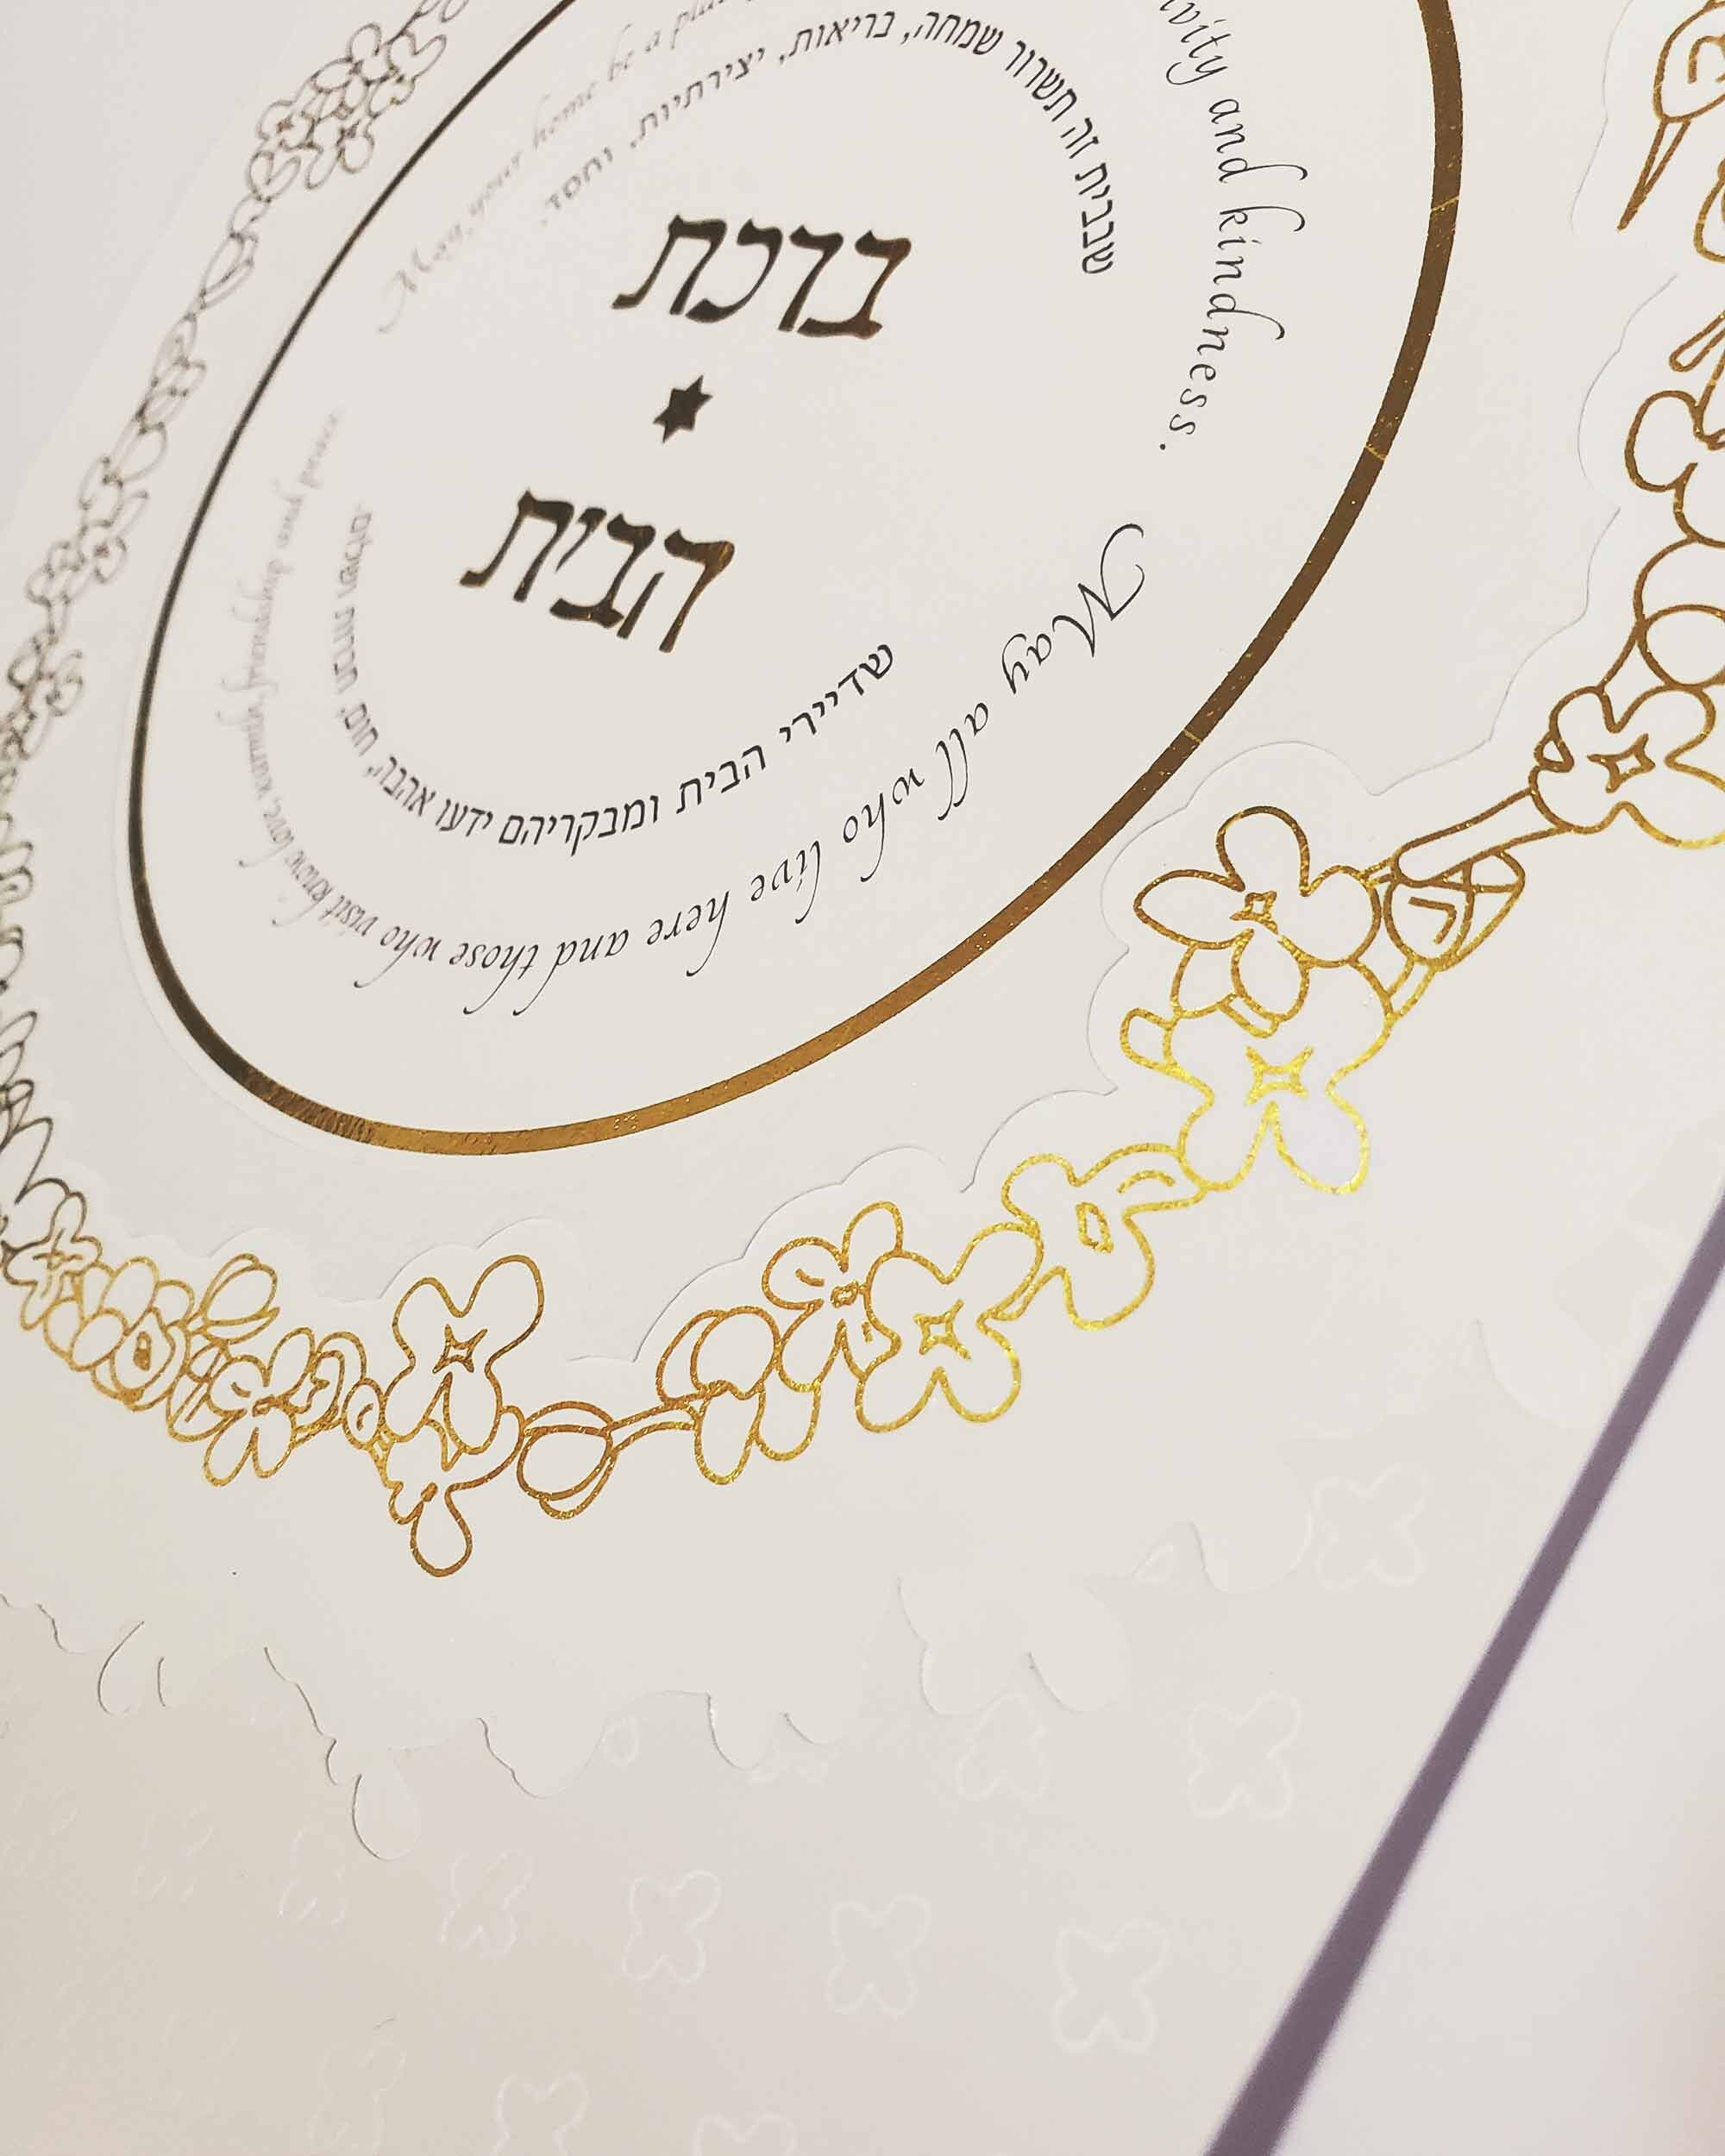 May your home be a
vity and kindness.
שבבית זה תשרור שמחה, בריאות, יצירתיות, וחסד.
ברכת
הבית
שדיירי הבית ומבקריהם ידעו אהבה, חום, חברות ושלום.
May all who live here and those who visit know love, warmth, friendship and peace.